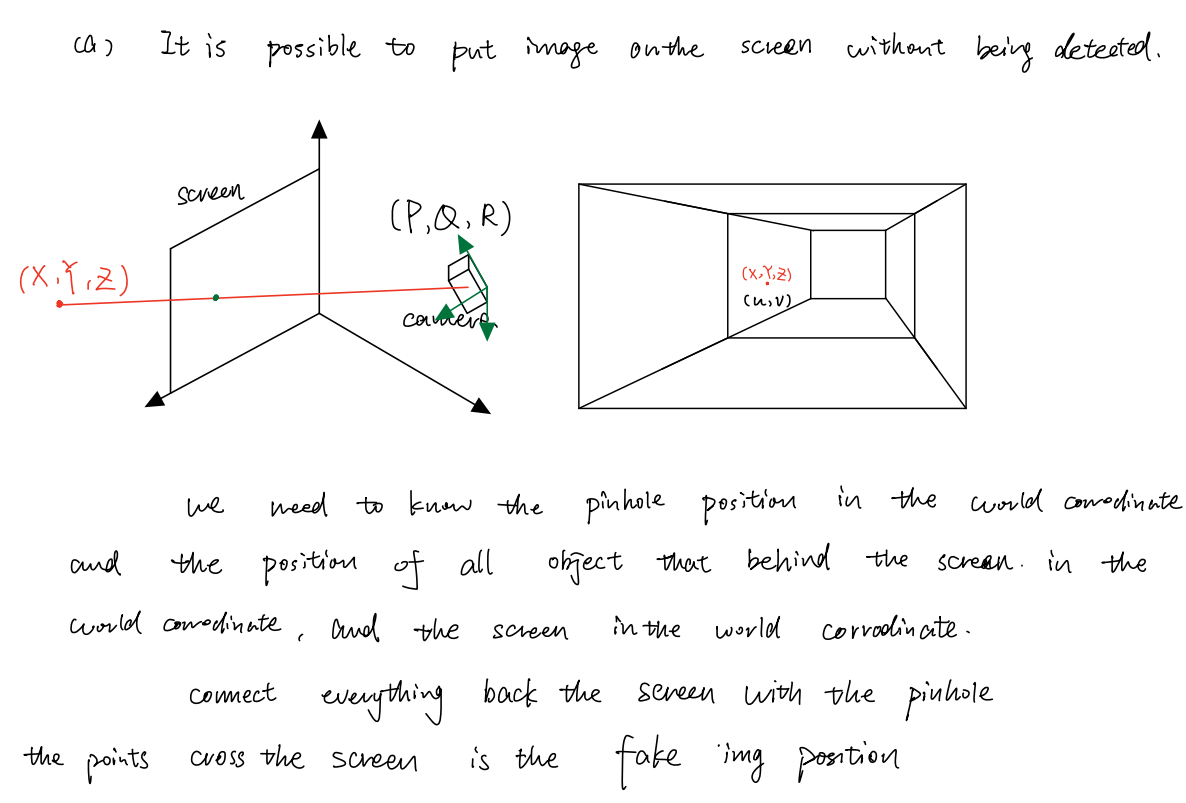 (a) It is possible to put image on the screen without being detected.
screen
(P,Q,R)
(X,Y,Z)
camera
(X,Y,Z)
(u,v)
we need to know the pinhole position in the world corrodinate
and the position of all object that behind the screen. in the
world corrodinate, and the screen in the world corrodinate.
connect everything back the screen with the pinhole
the points cross the screen is the fake img position